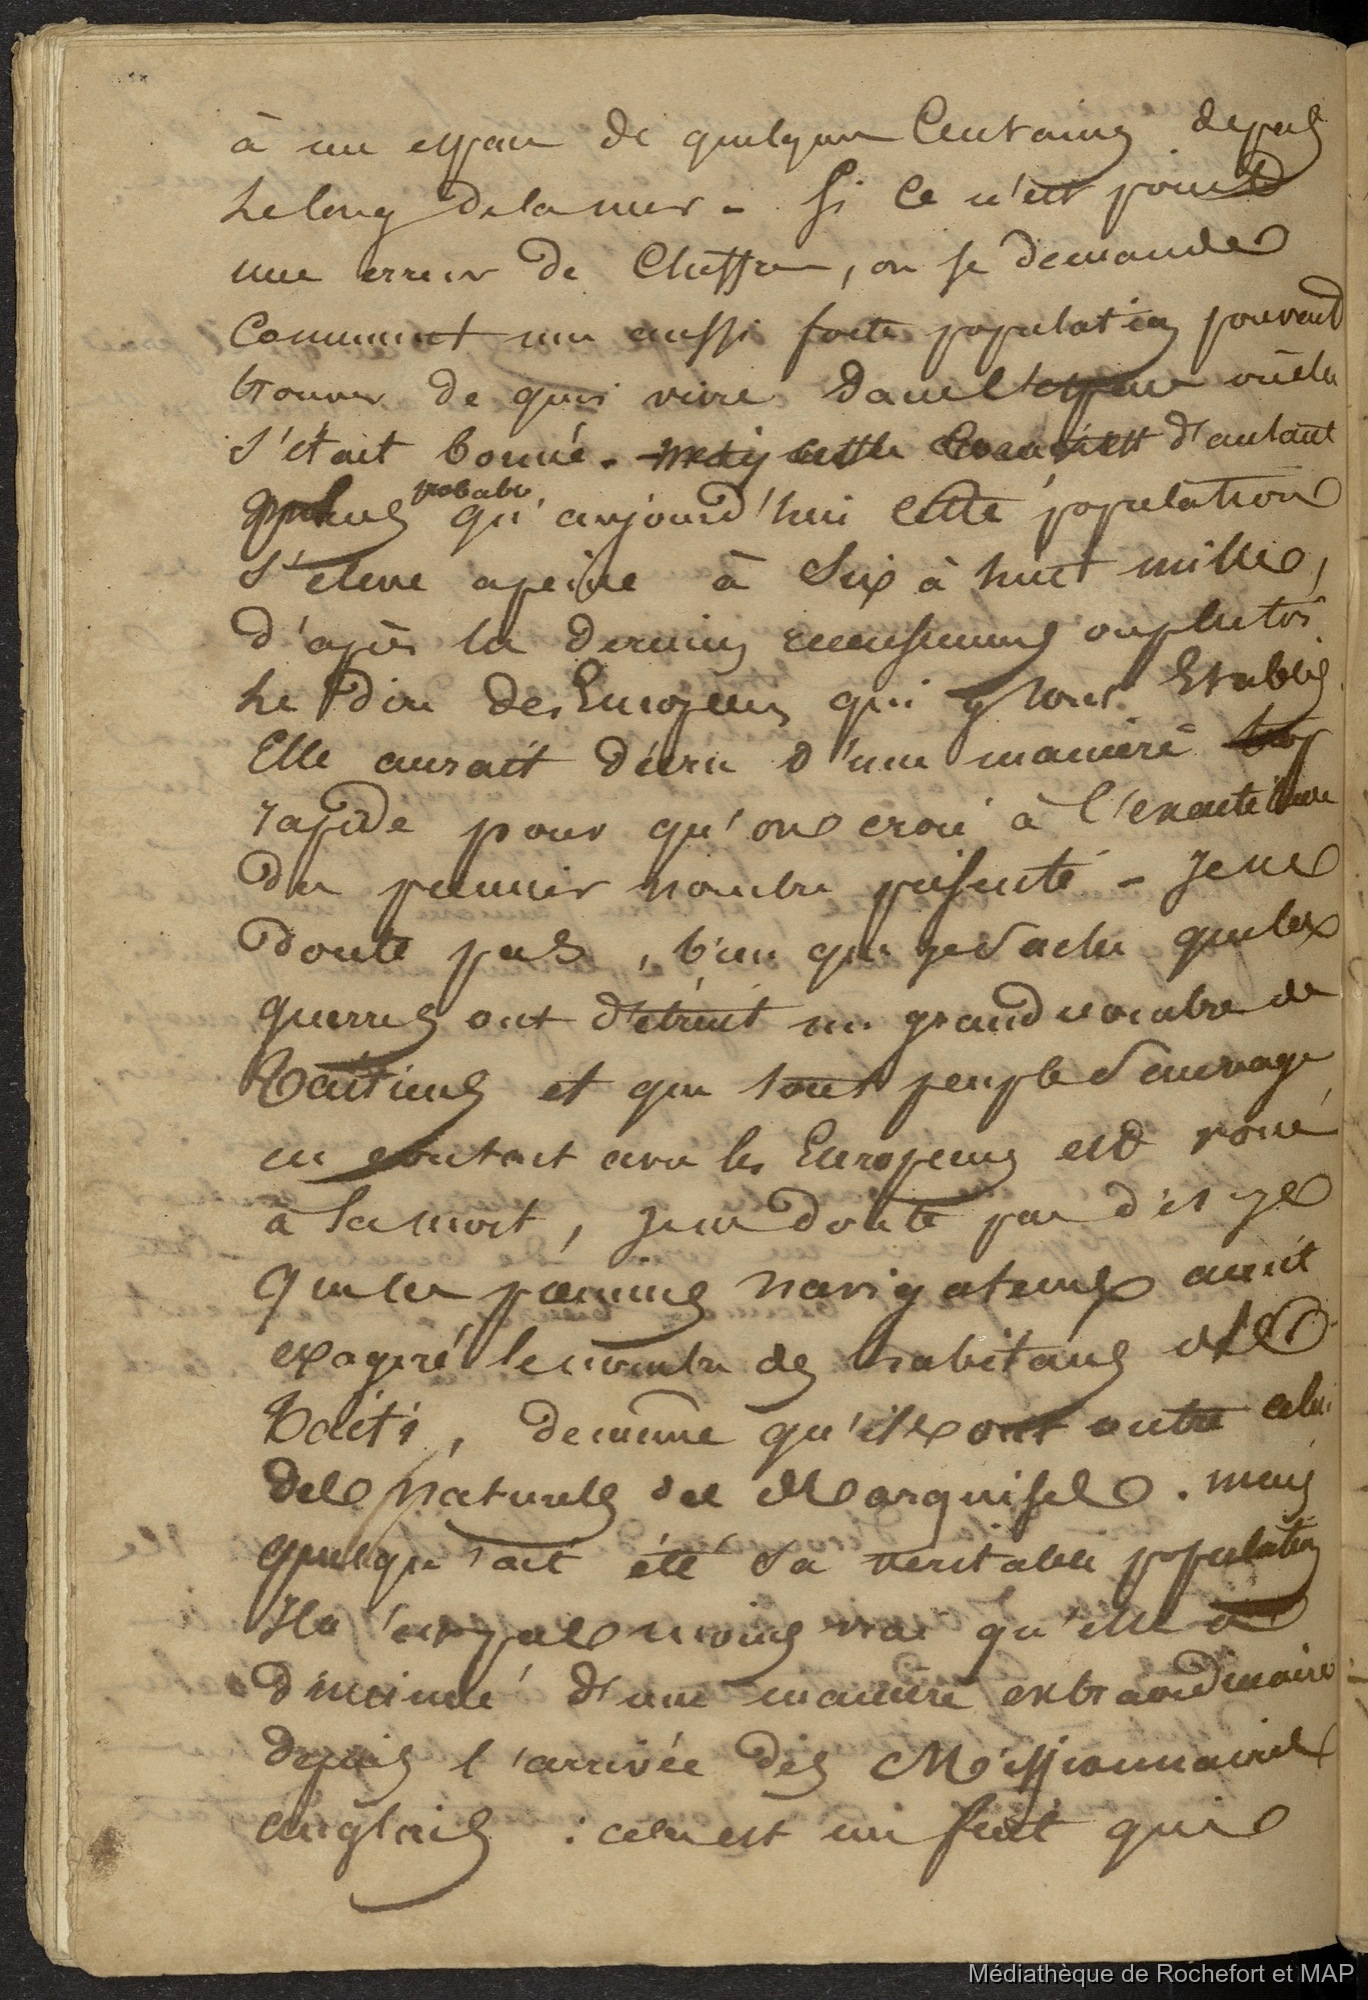 à un espace de quelques Centaines de pas
Le long de la mer - Si Ce n'est point
une erreur de Chiffre, on se demande
Comment une aussi forte population pouvait
trouver de quoi vivre dans l'espace où elle
s'était bornée - mais cette d'autant
plus probable qu'aujourd'hui cette population
s'eleve apeine à Six à huit mille,
d'après les derniers recensemens ou plutôt
Le dire des Européens qui y sont Etablis
Elle aurait décru d'une maniere trop
rapide pour qu'on croie à l'exactitude
du premier nombre présenté - Je ne
doute pas, bien que je sache que les
guerres ont détruit un grand nombre de
Taïtiens et que tout peuple Sauvage
en contact avec les Européens est voué
à la mort, je ne doute pas dis-je
que les premiers navigateurs aient
exagéré le nombre des habitans de
Taïti, de même qu'ils ont outré celui
des naturels des Marquises. mais
quelqu'ait été sa veritable population
Il n'est pas moins vrai qu'elle a
diminué d'une manière extraordinaire
depuis l'arrivée des Missionnaires
anglais : cela est un fait qui
Médiathèque de Rochefort et MAP